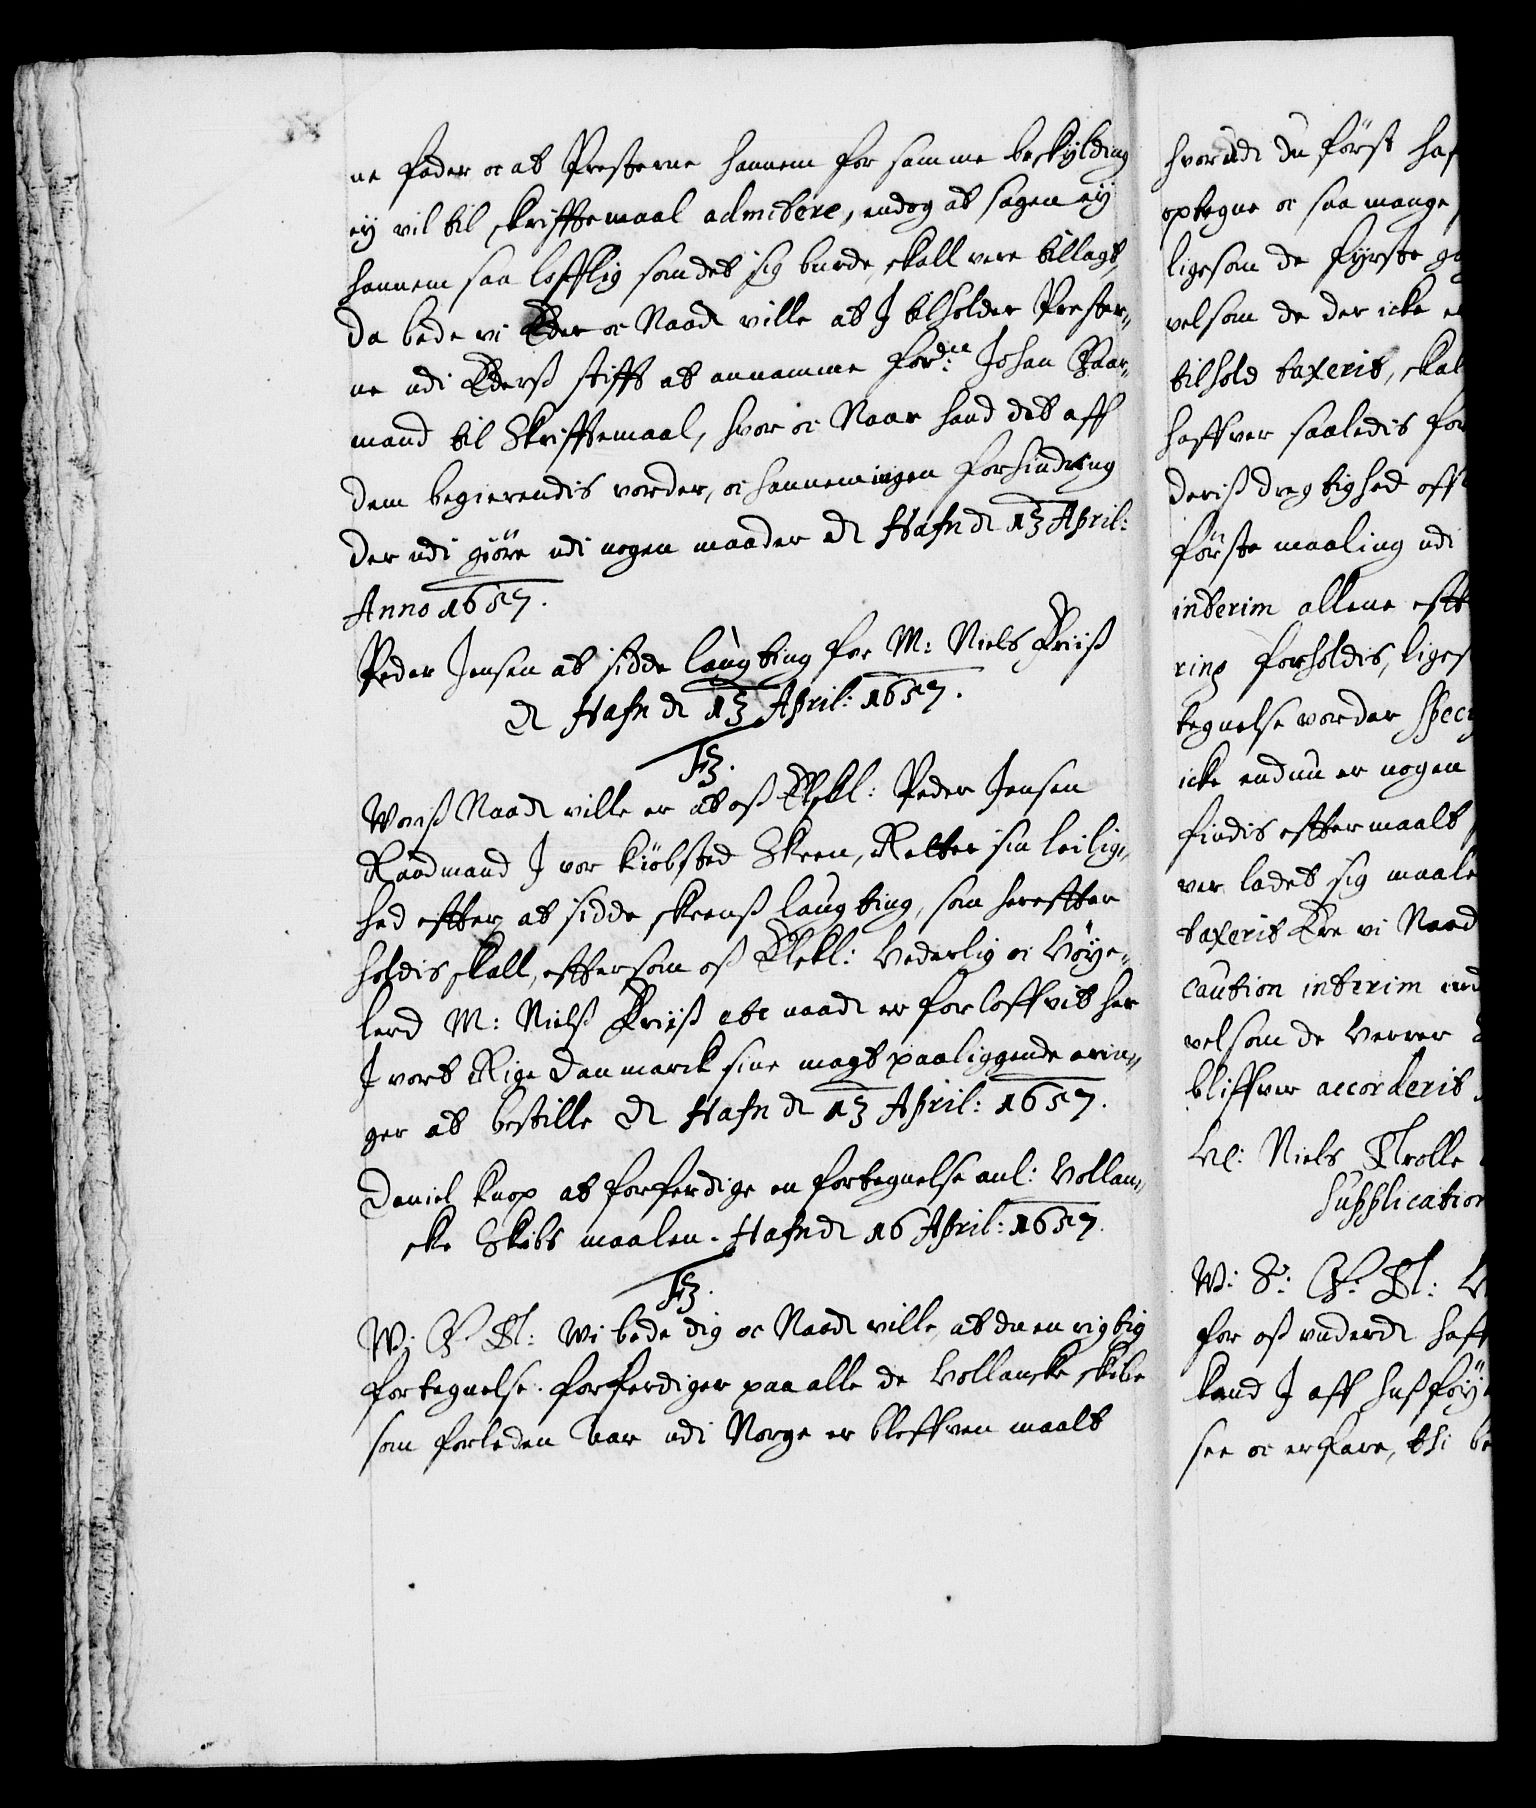 ne fader oc at Presterne hannem for samme beskylding
ey vil til skrifftemaal admitere, endog at sagen ey
hannem saa lofflig som det sig burde, skall vere tillagt,
da bede vi Eder oc Naadl ville at I tilholder Prester,,
ne udi Ederß stifft at annamme fordne Johan Gaar,,
mand til Skrifftemaal, hvor oc Naar hand det aff
dem begierendis vorder, oc hannem ingen forhindring
der udi giöre udi nogen maader dl Hafn dl 13 April:
Anno 1657.
Peder Jensen at sidde laugting for M: Niels Friiß
dl Hafn dl 13 April: 1657.
F3.
Voriß Naadl ville er at oß Elskl: Peder Jensen
Raadmand I vor kiöbsted Skeen, Retter sin leilig,,
hed efftter at sidde skeenß laugting, som herefftter
holdis skall, efftersom oß Elskl: Vederlig oc Vöye,,
lerd M: Nielß Friiß etc naadl er forloffvit her
I vort Rige Danmarck sine magt paaliggende erin,,
ger at bestille dl Hafn dl 13 April: 1657.
Daniel Knop at forferdige en fortegnelse anl: Hollan,,
ske Skibs maalen. Hafn dl 16 April: 1657.
F3.
W: G: Tl: Wi bede dig oc Naadl ville, at du en rigtig
fortegnelse forferdiger paa alle de Hollanske skibe
som forleden Aar udi Norge er bleffven maalt
hvorudi du först haf
optegne oc saa mange
ligesom de fyrste
velsom de der icke
tilhold taxerit, skal
haffver saaledis for
deriß dregtighed off
förste maaling udi
interim allene efft
ring forholdis, liges
tegnelse vorder spec
icke endnu er nogen
findis effter maalt
ver ladet sig maale
taxerit Ere vi Naad
caution interim
velsom de Verrer
bliffver accorderit
Vl: Niels Trolle
Supplication
W: S: G: Tl:
for oß underdl haff
kand I aff hußföy
see oc erfare, thi be